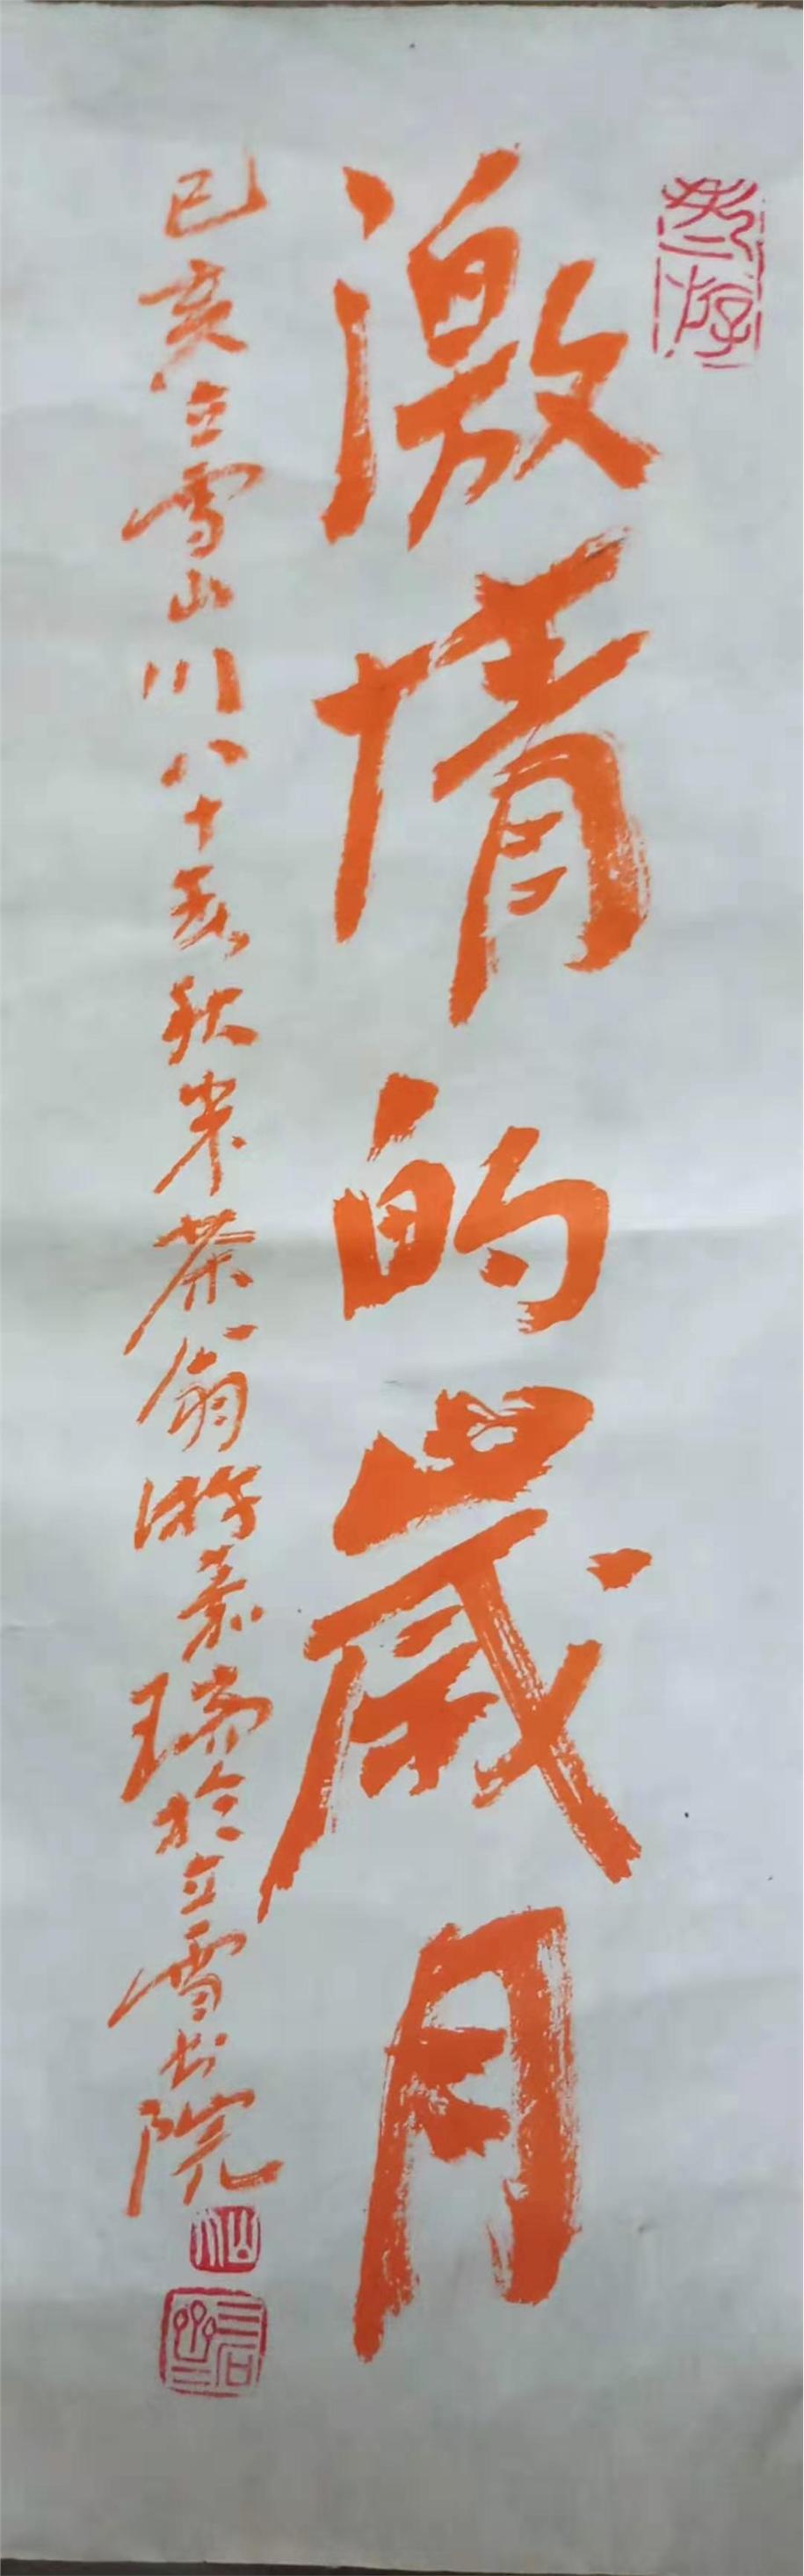 激情的歲月
己亥立雪山川八十五秋米茶翁游嘉瑞於立雪书院